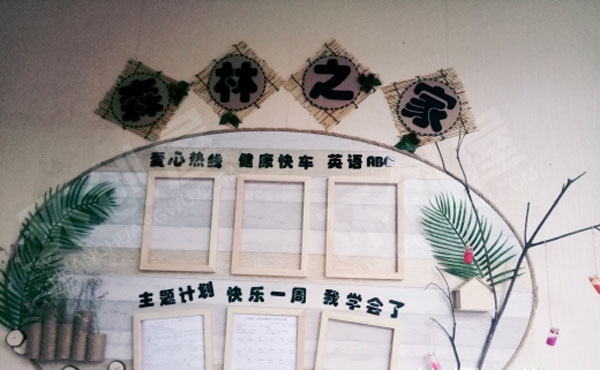 森林之家
爱心热线 健康快车 英语ABC
主题计划 快乐一周 我学会了